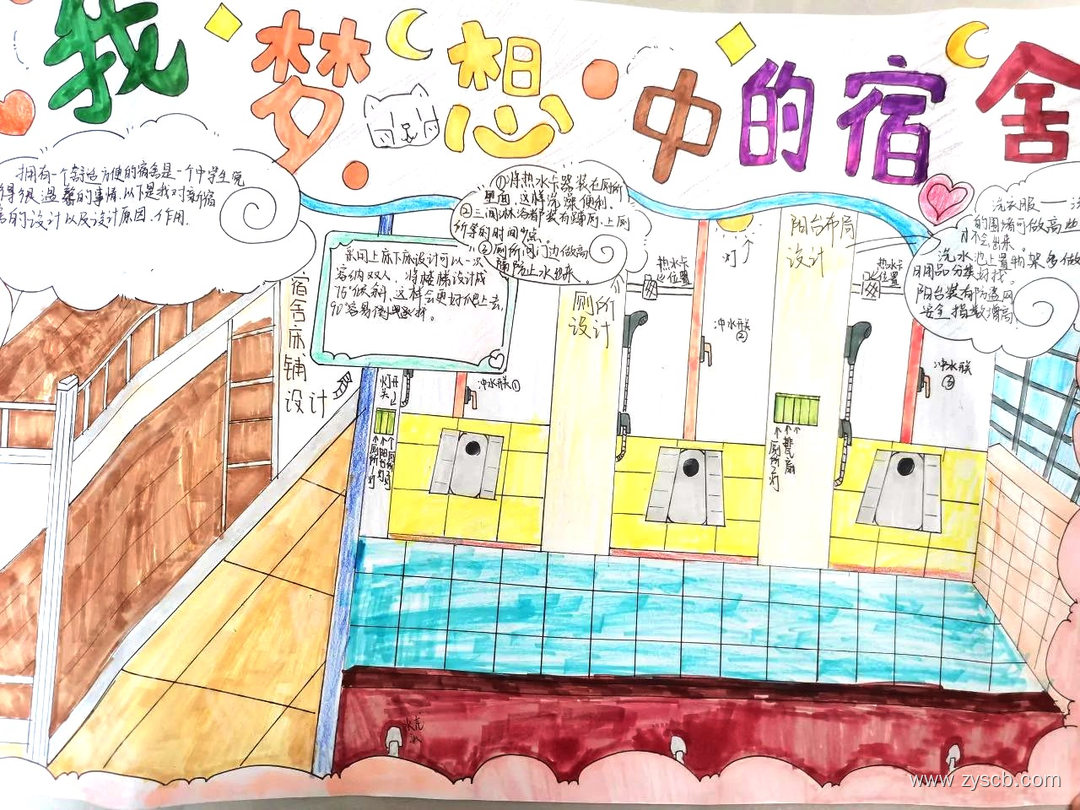 我梦想中的宿舍
拥有一个舒适方便的宿舍是一个中学生觉
得很温馨的事情.以下是我对新宿
舍的设计以及设计原因.作用.
①将热水卡器装在厕所
里面,这样洗澡便利.
②三间淋浴都装有蹲厕,上厕
所等的时间少点.
③厕所间门边做高
铺防止水出来.
采用上床下床设计可以一次
容纳双人,将楼梯设计成
75°倾斜,这样会更好爬上去,
90°容易
宿舍床铺
设计
厕所
设计
阳台布局
设计
洗衣服
的围堵可做高些
才不会出来.
洗水池上置物架多做
日用品分类好找.
阳台装有防盗网
安全指数增高.
热水卡
位置
灯
热水卡
位置
冲水开关
②
冲水开关①
冲水开关
③
灯开关
↑厕所1灯
↑阳台灯
↑厕所2灯
水龙
www.zyscb.com